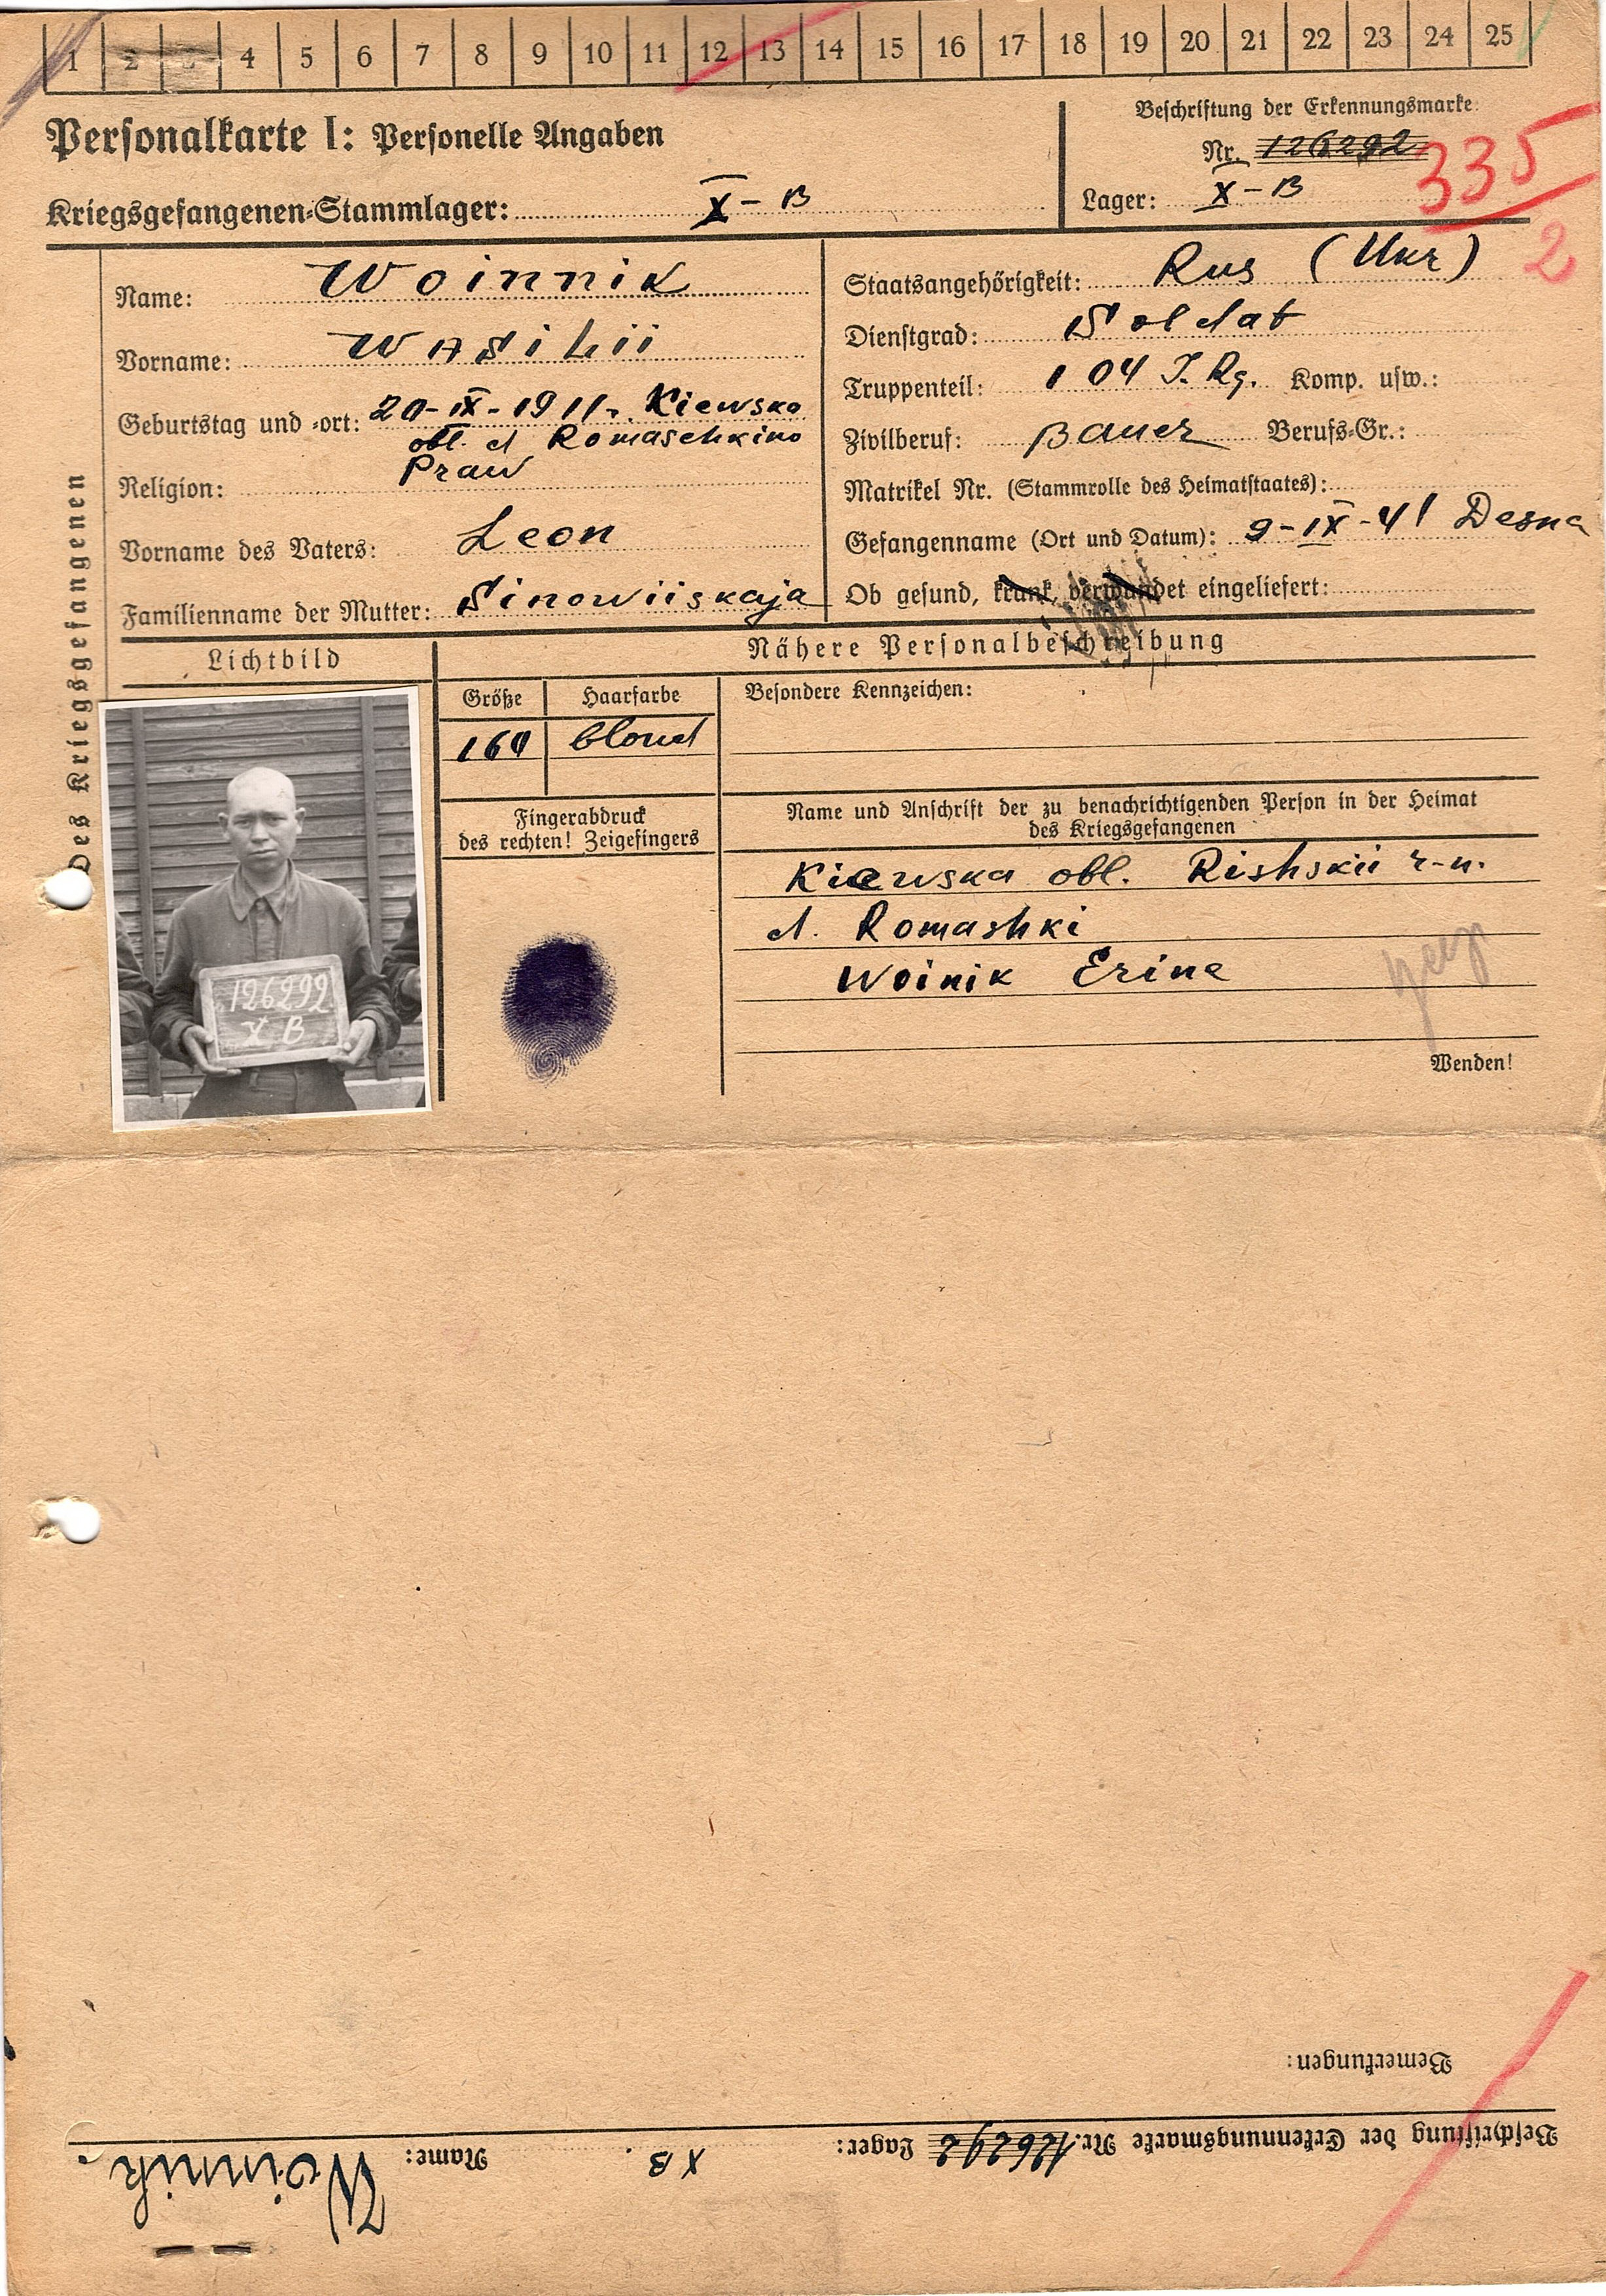 1 2 3 4 5 6 7 8 9 10 11 12 13 14 15 16 17 18 19 20 21 22 23 24 25
Personalkarte I: Personelle Angaben
Kriegsgefangenen-Stammlager: X-B
Beschriftung der Erkennungsmarke
Nr. 126292
335
Lager: X-B
2
Des Kriegsgefangenen
Name: Woinnik
Vorname: Wasilii
Geburtstag und -ort: 20-IX-1911. Kiewska
obl. d Romaschkino
Religion: Praw
Vorname des Vaters: Leon
Familienname der Mutter: Sinowiiskaja
Staatsangehörigkeit: Rus (Ukr)
Dienstgrad: Soldat
Truppenteil: 104 I. Rg. Komp. usw.:
Zivilberuf: Bauer Berufs-Gr.:
Matrikel Nr. (Stammrolle des Heimatstaates):
Gefangenname (Ort und Datum): 9-IX-41 Desna
Ob gesund, krank, verwundet eingeliefert:
Lichtbild
126292
X B
Nähere Personalbeschreibung
Größe Haarfarbe
164 blond
Besondere Kennzeichen:
Fingerabdruck
des rechten! Zeigefingers
Name und Anschrift der zu benachrichtigenden Person in der Heimat
des Kriegsgefangenen
Kiewska obl. Rishskii r-n.
d. Romashki
Woinik Erina
Wenden!
Bemerkungen:
Beschriftung der Erkennungsmarke Nr. 126292 Lager: X B Name: Woinnik.